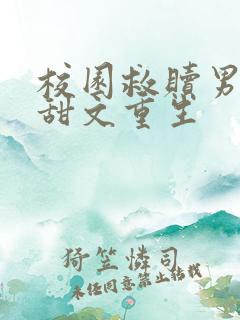 校園救贖男
甜文重生
猗笠憐司
未经同意禁止转载